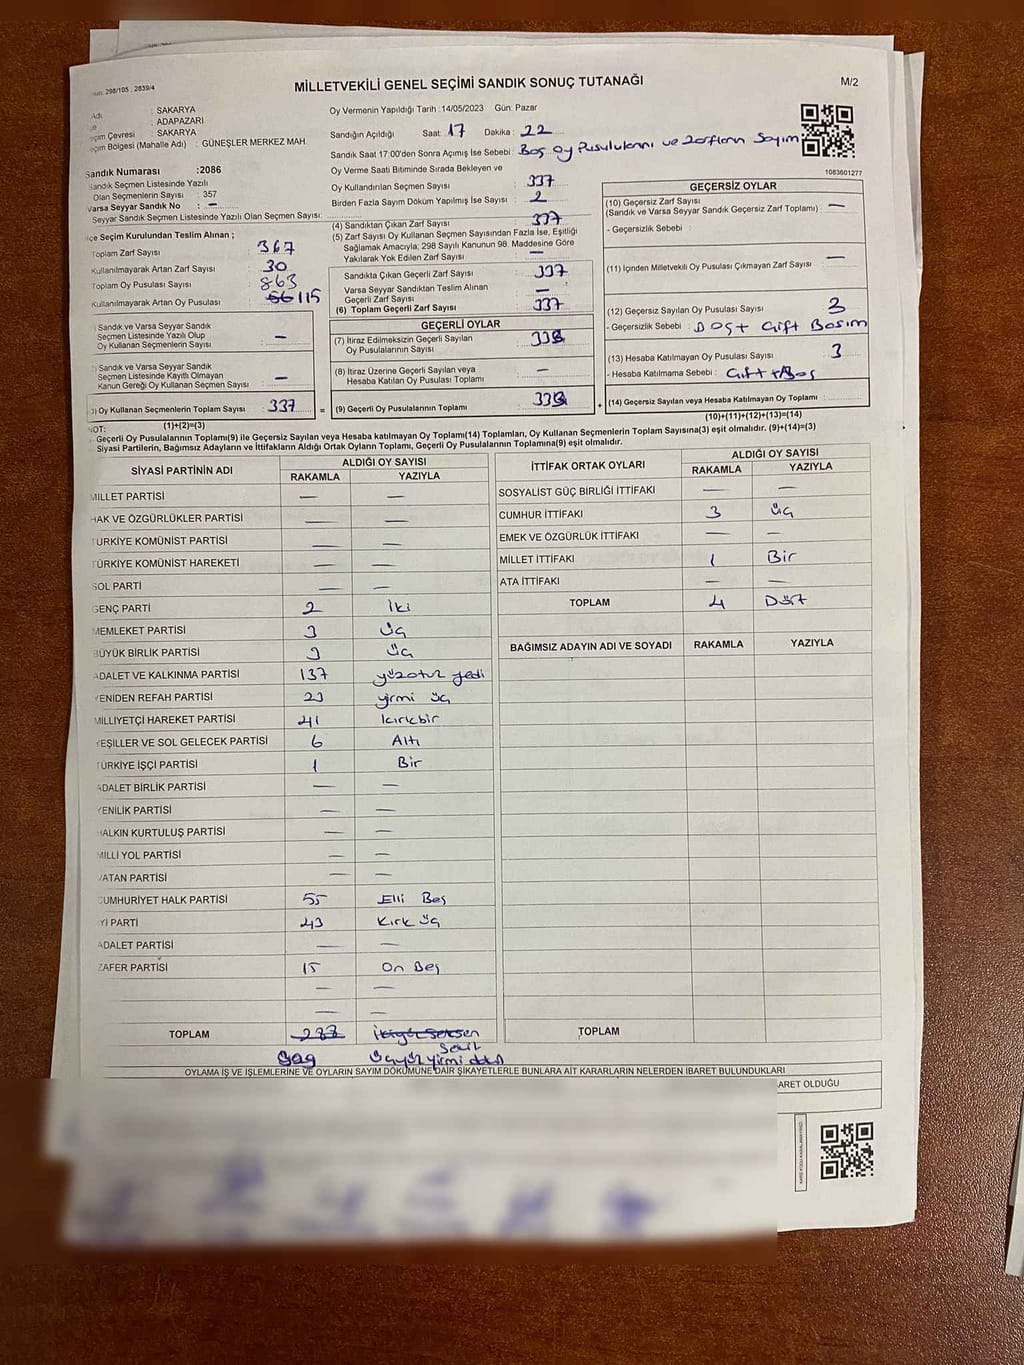 298/105 , 2839/4
MİLLETVEKİLİ GENEL SEÇİMİ SANDIK SONUÇ TUTANAĞI
M/2
Adı : SAKARYA
: ADAPAZARI
Seçim Çevresi : SAKARYA
Seçim Bölgesi (Mahalle Adı) : GÜNEŞLER MERKEZ MAH.
Oy Vermenin Yapıldığı Tarih :14/05/2023 Gün: Pazar
Sandığın Açıldığı Saat 17 Dakika : 22
Sandık Saat 17:00'den Sonra Açımış İse Sebebi : Boş oy Pusulularını ve zarfların Sayım
1083601277
Sandık Numarası :2086
Sandık Seçmen Listesinde Yazılı
Olan Seçmenlerin Sayısı : 357
Varsa Seyyar Sandık No : —
Seyyar Sandık Seçmen Listesinde Yazılı Olan Seçmen Sayısı:
İlçe Seçim Kurulundan Teslim Alınan ;
Toplam Zarf Sayısı : 367
Kullanılmayarak Artan Zarf Sayısı : 30
Toplam Oy Pusulası Sayısı : 863
Kullanılmayarak Artan Oy Pusulası : 115
) Sandık ve Varsa Seyyar Sandık
Seçmen Listesinde Yazılı Olup
Oy Kullanan Seçmenlerin Sayısı : —
) Sandık ve Varsa Seyyar Sandık
Seçmen Listesinde Kayıtlı Olmayan
Kanun Gereği Oy Kullanan Seçmen Sayısı : —
3) Oy Kullanan Seçmenlerin Toplam Sayısı : 337 =
(1)+(2)=(3)
Oy Verme Saati Bitiminde Sırada Bekleyen ve
Oy Kullandırılan Seçmen Sayısı : 337
Birden Fazla Sayım Döküm Yapılmış İse Sayısı : 2
(4) Sandıktan Çıkan Zarf Sayısı : 337
(5) Zarf Sayısı Oy Kullanan Seçmen Sayısından Fazla İse, Eşitliği
Sağlamak Amacıyla; 298 Sayılı Kanunun 98. Maddesine Göre
Yakılarak Yok Edilen Zarf Sayısı : —
Sandıkta Çıkan Geçerli Zarf Sayısı : 337
Varsa Seyyar Sandıktan Teslim Alınan
Geçerli Zarf Sayısı : —
(6) Toplam Geçerli Zarf Sayısı : 337
GEÇERLİ OYLAR
(7) İtiraz Edilmeksizin Geçerli Sayılan
Oy Pusulalarının Sayısı :
(8) İtiraz Üzerine Geçerli Sayılan veya
Hesaba Katılan Oy Pusulası Toplamı : —
(9) Geçerli Oy Pusulalarının Toplamı : +
GEÇERSİZ OYLAR
(10) Geçersiz Zarf Sayısı
(Sandık ve Varsa Seyyar Sandık Geçersiz Zarf Toplamı) : —
- Geçersizlik Sebebi :
(11) İçinden Milletvekili Oy Pusulası Çıkmayan Zarf Sayısı : —
(12) Geçersiz Sayılan Oy Pusulası Sayısı : 3
- Geçersizlik Sebebi : Boş + Çift Basım
(13) Hesaba Katılmayan Oy Pusulası Sayısı : 3
- Hesaba Katılmama Sebebi : Çift + Boş
(14) Geçersiz Sayılan veya Hesaba Katılmayan Oy Toplamı :
(10)+(11)+(12)+(13)=(14)
NOT:
- Geçerli Oy Pusulalarının Toplamı(9) ile Geçersiz Sayılan veya Hesaba katılmayan Oy Toplamı(14) Toplamları, Oy Kullanan Seçmenlerin Toplam Sayısına(3) eşit olmalıdır. (9)+(14)=(3)
Siyasi Partilerin, Bağımsız Adayların ve İttifakların Aldığı Ortak Oyların Toplamı, Geçerli Oy Pusulalarının Toplamına(9) eşit olmalıdır.
SİYASİ PARTİNİN ADI ALDIĞI OY SAYISI
RAKAMLA YAZIYLA
MİLLET PARTİSİ — —
HAK VE ÖZGÜRLÜKLER PARTİSİ — —
TÜRKİYE KOMÜNİST PARTİSİ — —
TÜRKİYE KOMÜNİST HAREKETİ — —
SOL PARTİ — —
GENÇ PARTİ 2 İki
MEMLEKET PARTİSİ 3 Üç
BÜYÜK BİRLİK PARTİSİ 3 Üç
ADALET VE KALKINMA PARTİSİ 137 yüzotuz yedi
YENİDEN REFAH PARTİSİ 23 yirmi üç
MİLLİYETÇİ HAREKET PARTİSİ 41 kırkbir
YEŞİLLER VE SOL GELECEK PARTİSİ 6 Altı
TÜRKİYE İŞÇİ PARTİSİ 1 Bir
ADALET BİRLİK PARTİSİ — —
YENİLİK PARTİSİ — —
HALKIN KURTULUŞ PARTİSİ — —
MİLLİ YOL PARTİSİ — —
VATAN PARTİSİ — —
CUMHURİYET HALK PARTİSİ 55 Elli Beş
İYİ PARTİ 43 Kırk üç
ADALET PARTİSİ — —
ZAFER PARTİSİ 15 On Beş
— —
— —
TOPLAM
İTTİFAK ORTAK OYLARI ALDIĞI OY SAYISI
RAKAMLA YAZIYLA
SOSYALİST GÜÇ BİRLİĞİ İTTİFAKI — —
CUMHUR İTTİFAKI 3 üç
EMEK VE ÖZGÜRLÜK İTTİFAKI — —
MİLLET İTTİFAKI 1 Bir
ATA İTTİFAKI — —
TOPLAM 4 Dört
BAĞIMSIZ ADAYIN ADI VE SOYADI RAKAMLA YAZIYLA
TOPLAM
OYLAMA İŞ VE İŞLEMLERİNE VE OYLARIN SAYIM DÖKÜMÜNE DAİR ŞİKAYETLERLE BUNLARA AİT KARARLARIN NELERDEN İBARET BULUNDUKLARI
ARET OLDUĞU